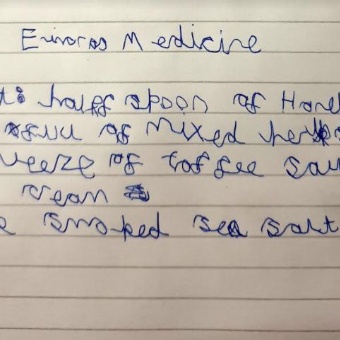 Medicine
half spoon of Hone
of mixed herbs
ueeze of toffee sau
ream
e smoked sea salt